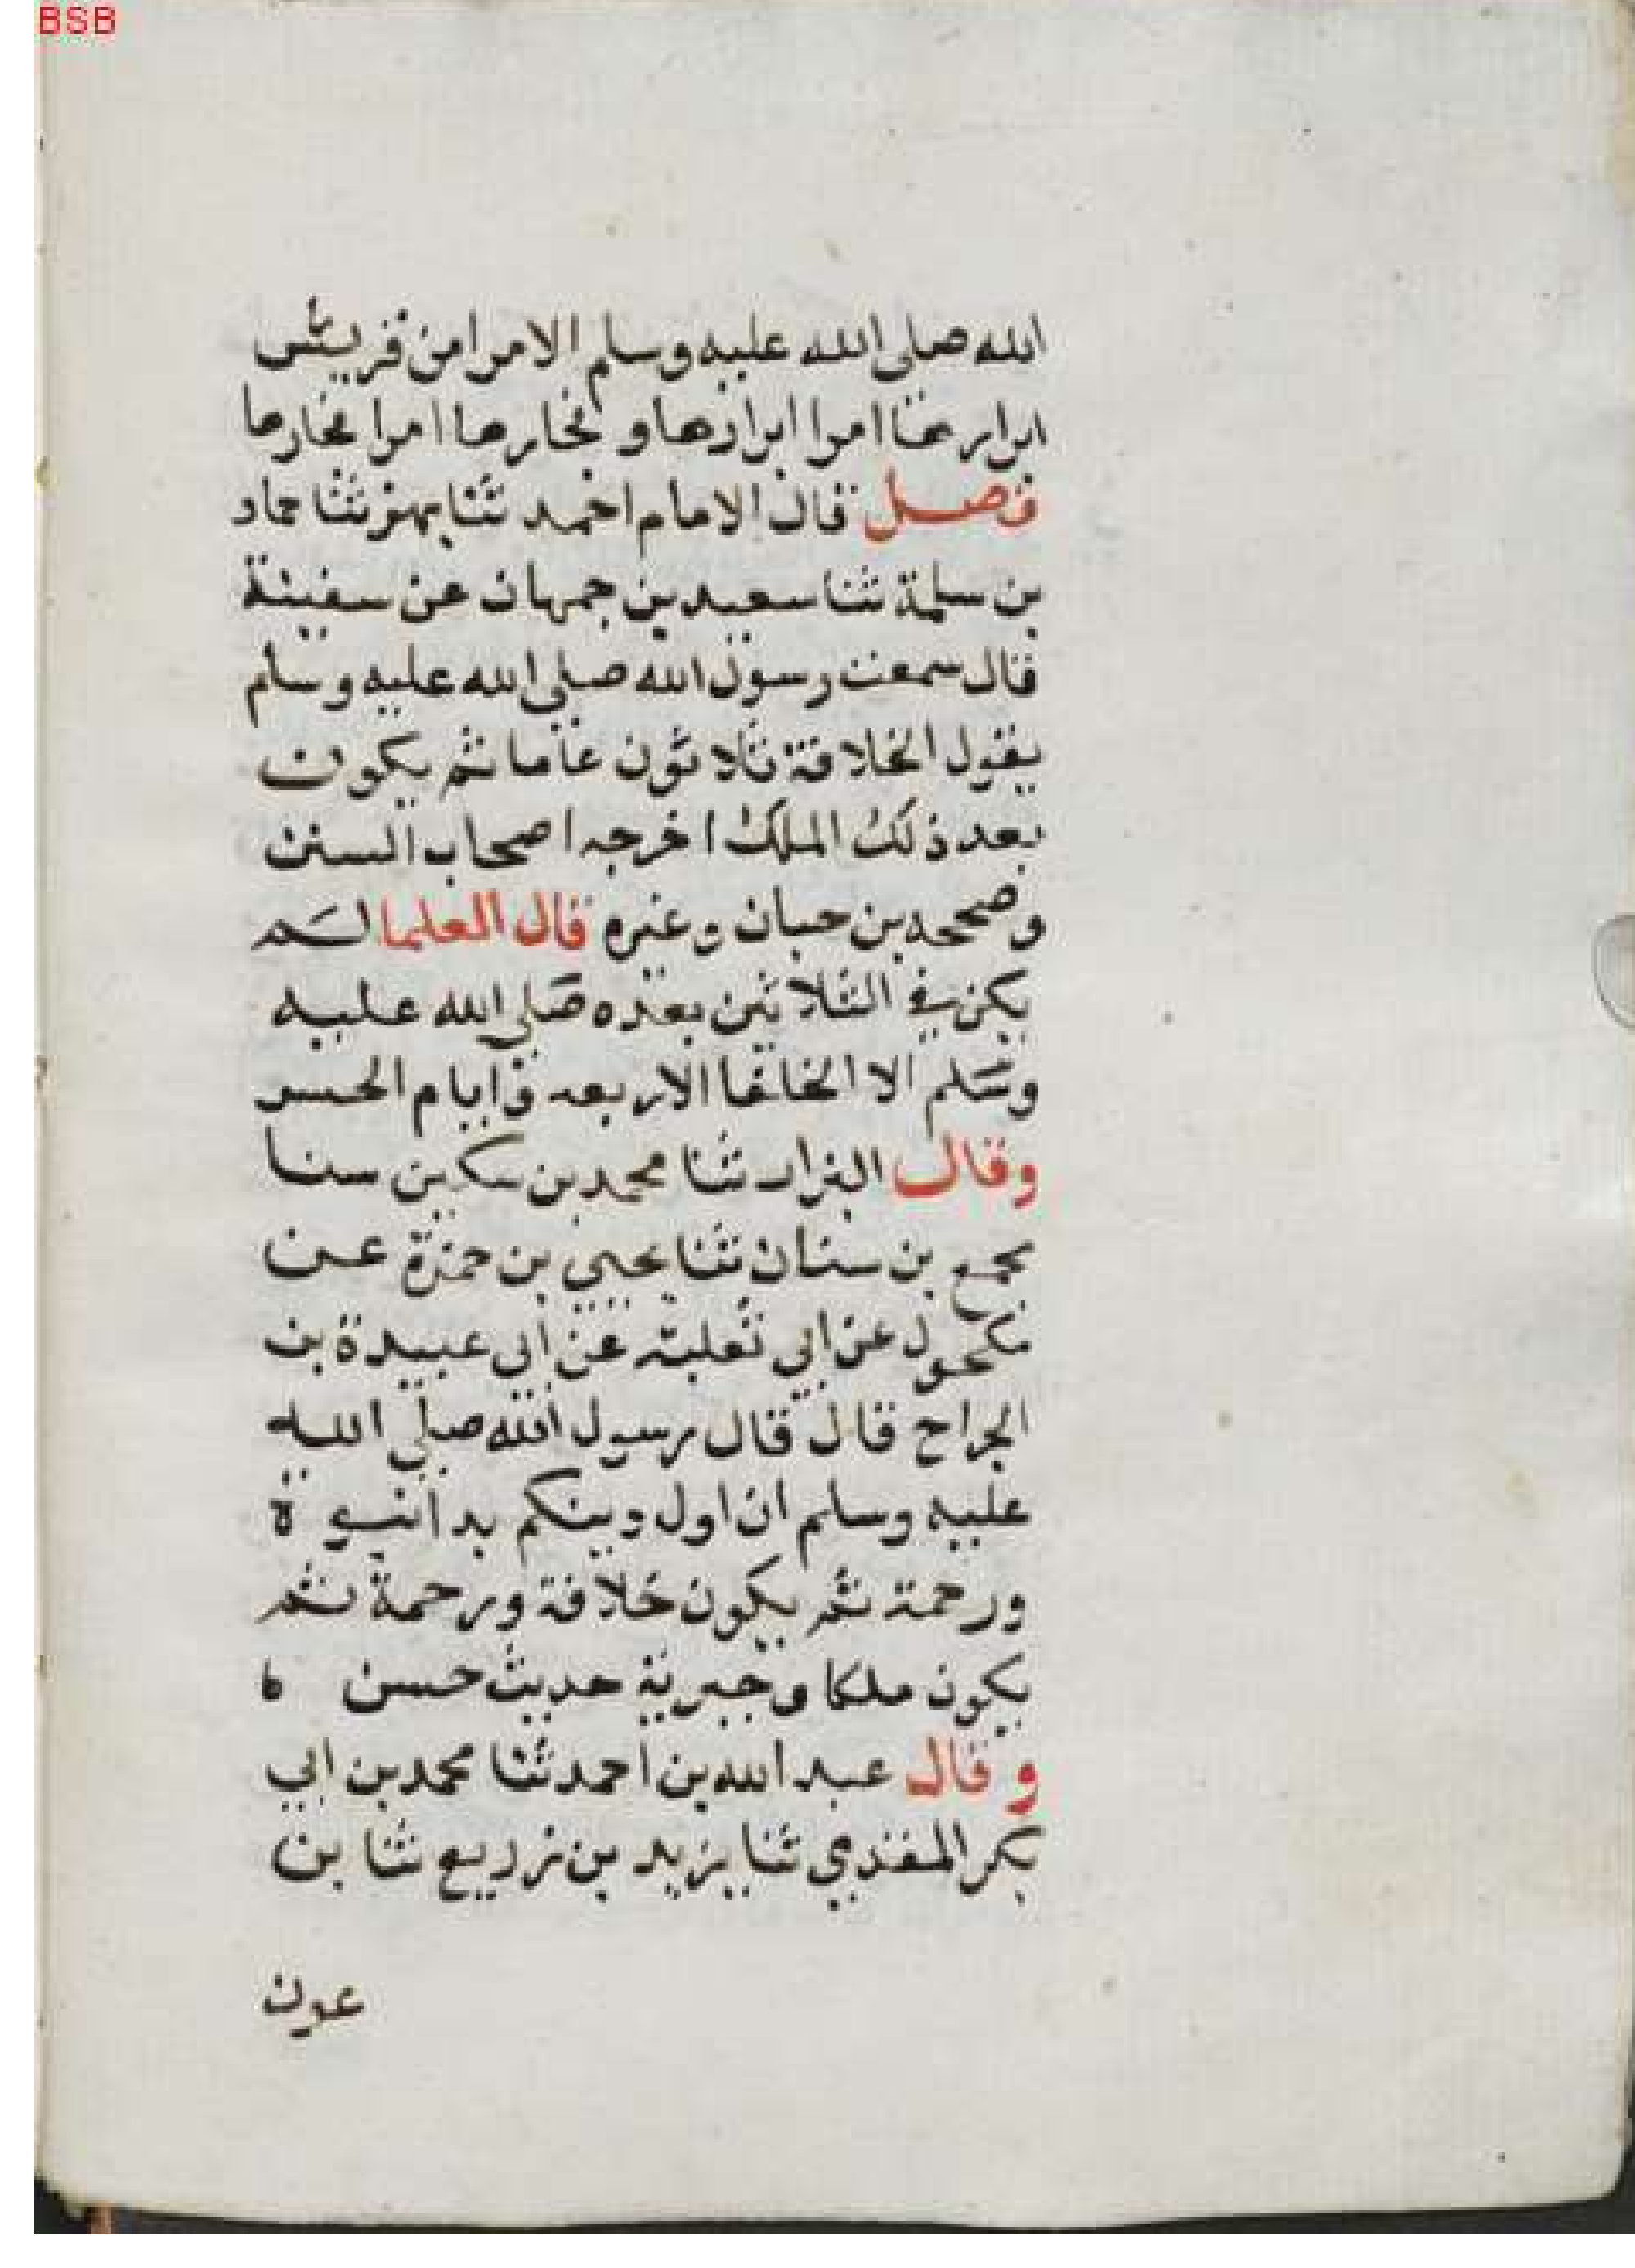 BSB
الله صلى الله عليه وسلم الامرا من قريش
ابرارها امرا ابرارها وفجارها امرا فجارها
فصل قال الامام احمد ثنا بهز ثنا حماد
بن سلمة ثنا سعيد بن جمهان عن سفينة
قال سمعت رسول الله صلى الله عليه وسلم
يقول الخلافة ثلاثون عاما ثم يكون
بعد ذلك الملك اخرجه اصحاب السنن
وصححه بن حبان وغيره قال العلما لم
يكن في الثلاثين بعده صلى الله عليه
وسلم الا الخلفا الاربعه وايام الحسن
وقال البزار ثنا محمد بن سكين سنا
يجمع بن سنان ثنا يحيي بن حمزة عن
مكحول عن ابي ثعلبة عن ابي عبيدة بن
الجراح قال قال رسول الله صلى الله
عليه وسلم ان اول دينكم بدا نبوة
ورحمة ثم يكون خلافة ورحمة ثم
يكون ملكا وجبرية حديث حسن ه
وقال عبد الله بن احمد ثنا محمد بن ابي
بكر المقدمي ثنا يزيد بن زريع ثنا بن
عون